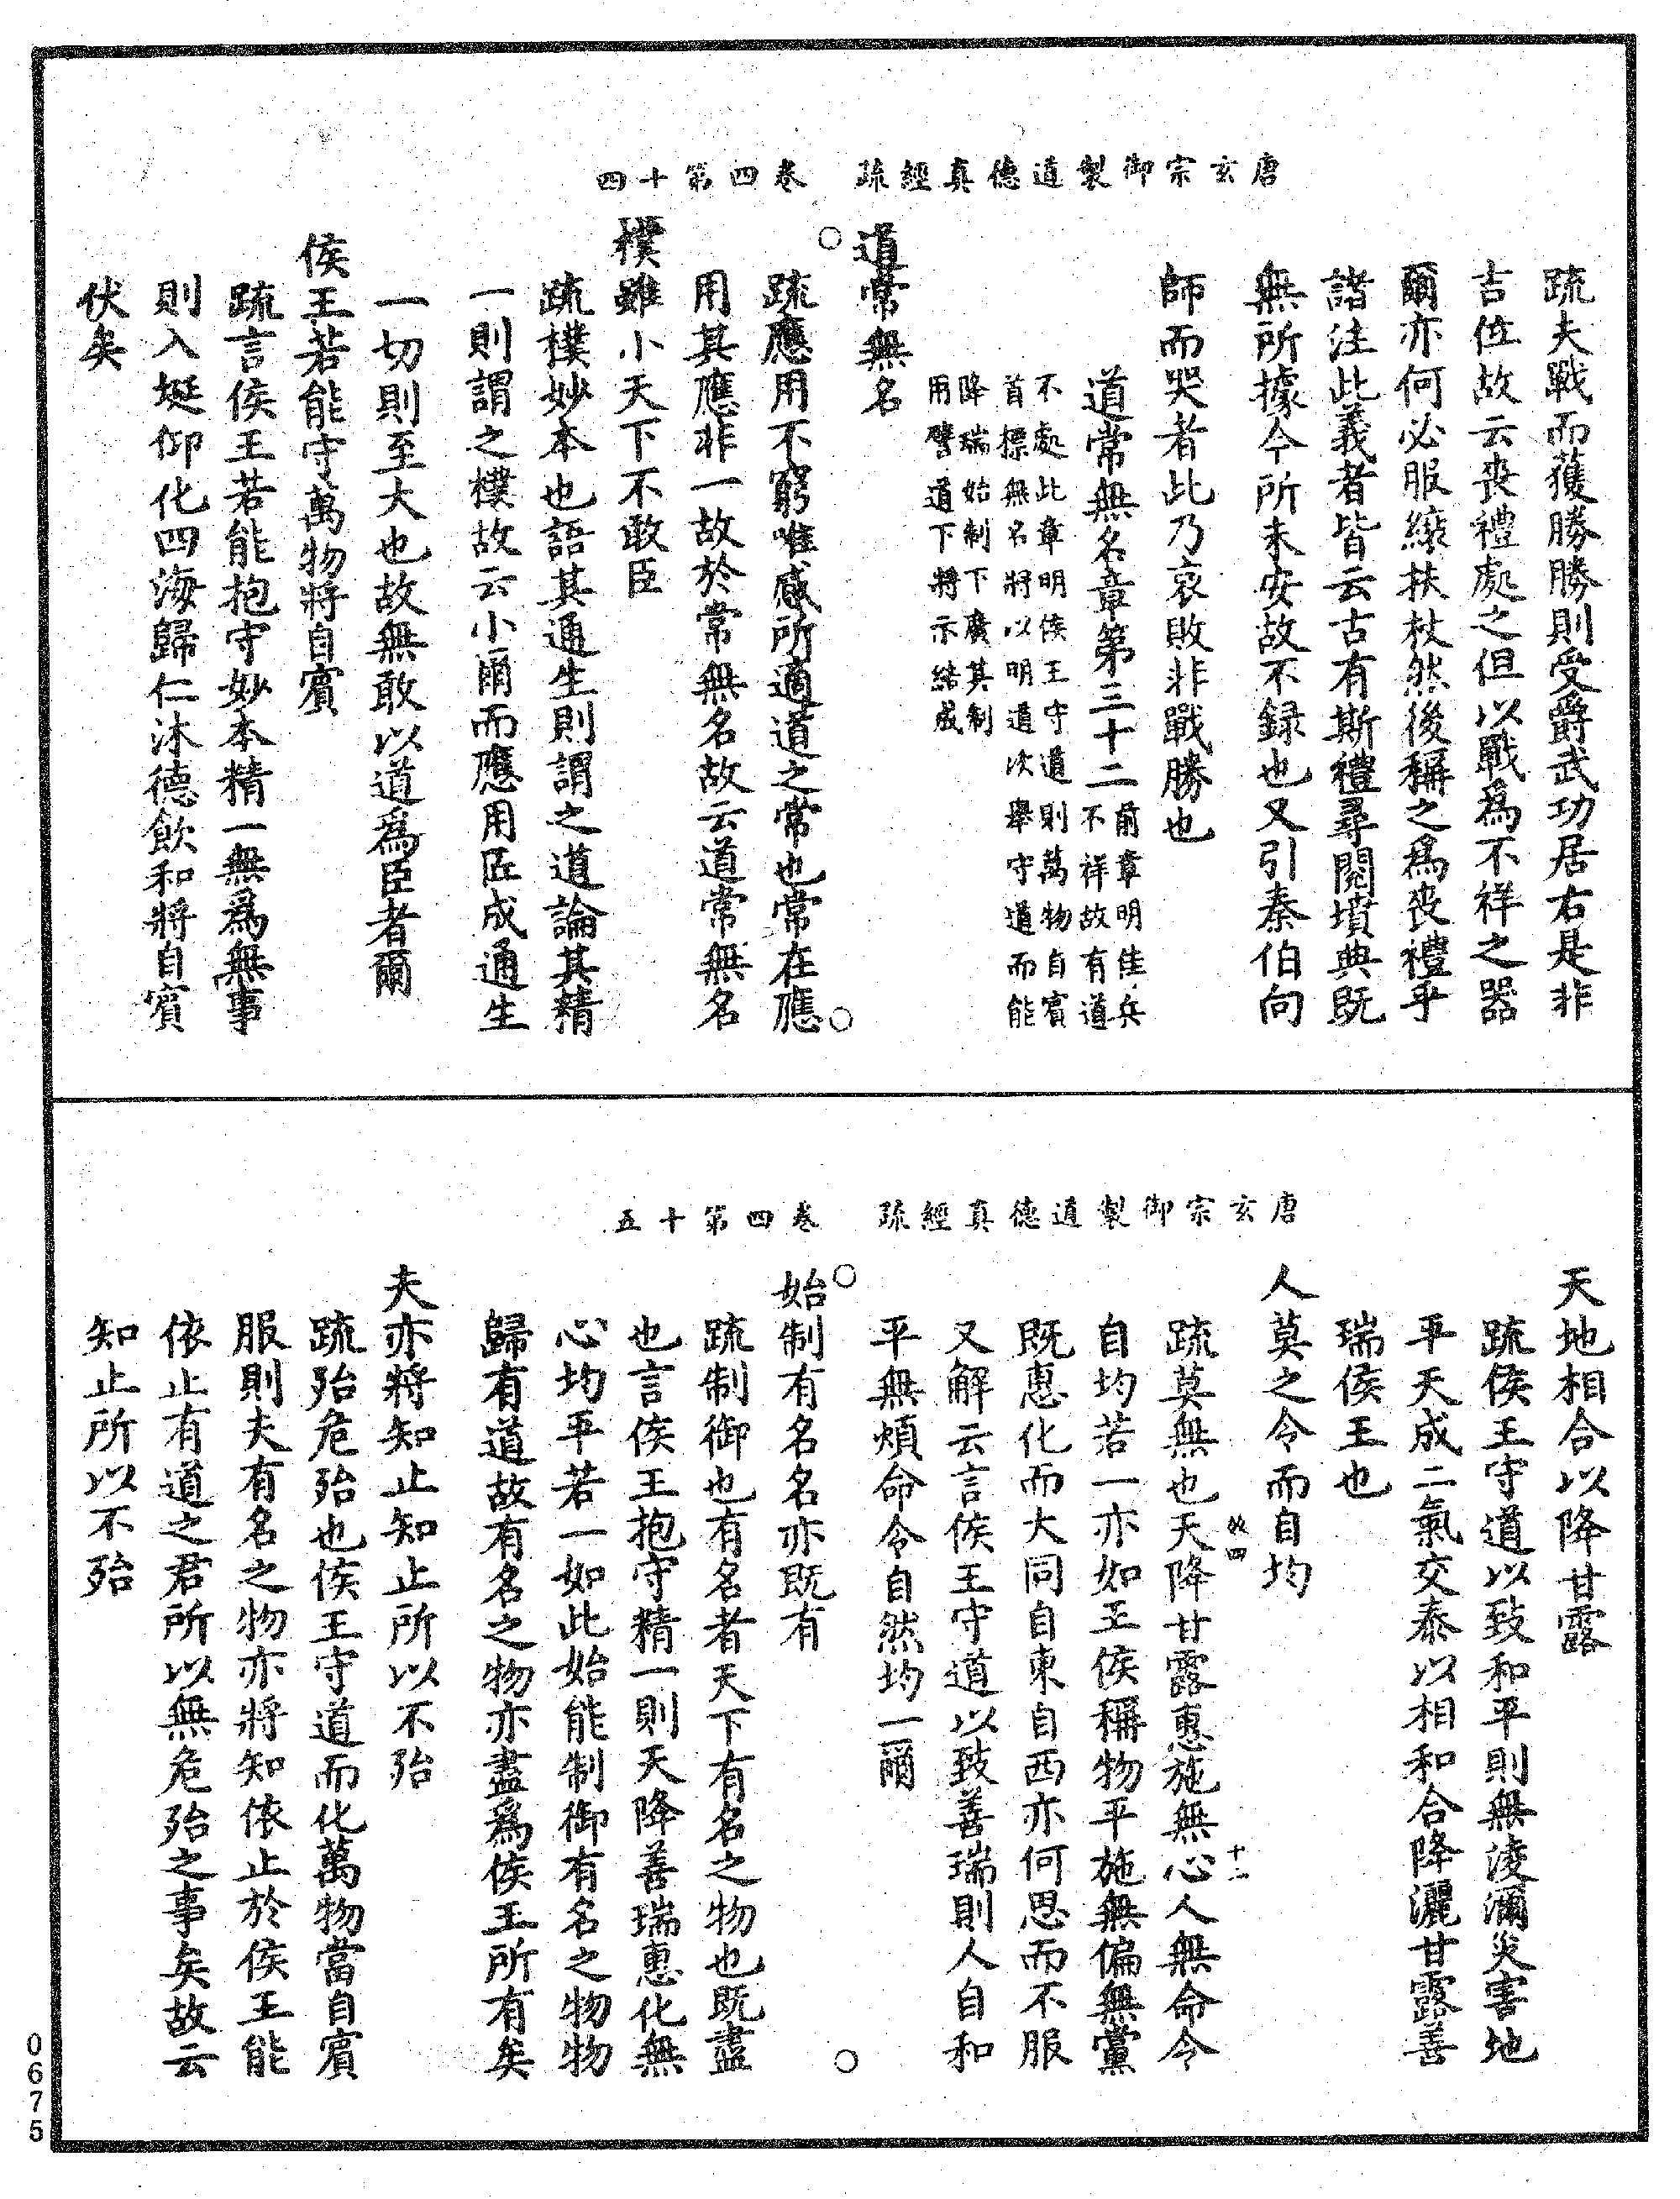 唐玄宗御製道德真經疏　卷四第十四
疏夫戰而獲勝勝則受爵武功居右是非
吉位故云喪禮處之但以戰爲不祥之器
爾亦何必服縗扶杖然後稱之爲喪禮乎
諸注此義者皆云古有斯禮尋閱墳典既
無所據今所未安故不録也又引秦伯向
師而哭者此乃哀敗非戰勝也
道常無名章第三十二
前章明佳兵
不祥故有道
不處此章明侯王守道則萬物自賓
首標無名將以明道次舉守道而能
降瑞始制下廣其制
用譬道下將示結成
道常無名
疏應用不窮唯感所適道之常也常在應
用其應非一故於常無名故云道常無名
樸雖小天下不敢臣
疏樸妙本也語其通生則謂之道論其精
一則謂之樸故云小爾而應用匠成通生
一切則至大也故無敢以道爲臣者爾
侯王若能守萬物將自賓
疏言侯王若能抱守妙本精一無爲無事
則入埏仰化四海歸仁沐德飲和將自賓
伏矣
唐玄宗御製道德真經疏　卷四第十五
天地相合以降甘露
疏侯王守道以致和平則無淩瀰災害地
平天成二氣交泰以相和合降灑甘露善
瑞侯王也
人莫之令而自均
疏莫無也天降甘露惠施無心人無命令
效四　十一
自均若一亦如王侯稱物平施無偏無黨
既惠化而大同自東自西亦何思而不服
又解云言侯王守道以致善瑞則人自和
平無煩命令自然均一爾
始制有名名亦既有
疏制御也有名者天下有名之物也既盡
也言侯王抱守精一則天降善瑞惠化無
心均平若一如此始能制御有名之物物
歸有道故有名之物亦盡爲侯王所有矣
夫亦將知止知止所以不殆
疏殆危殆也侯王守道而化萬物當自賓
服則夫有名之物亦將知依止於侯王能
依止有道之君所以無危殆之事矣故云
知止所以不殆
0675